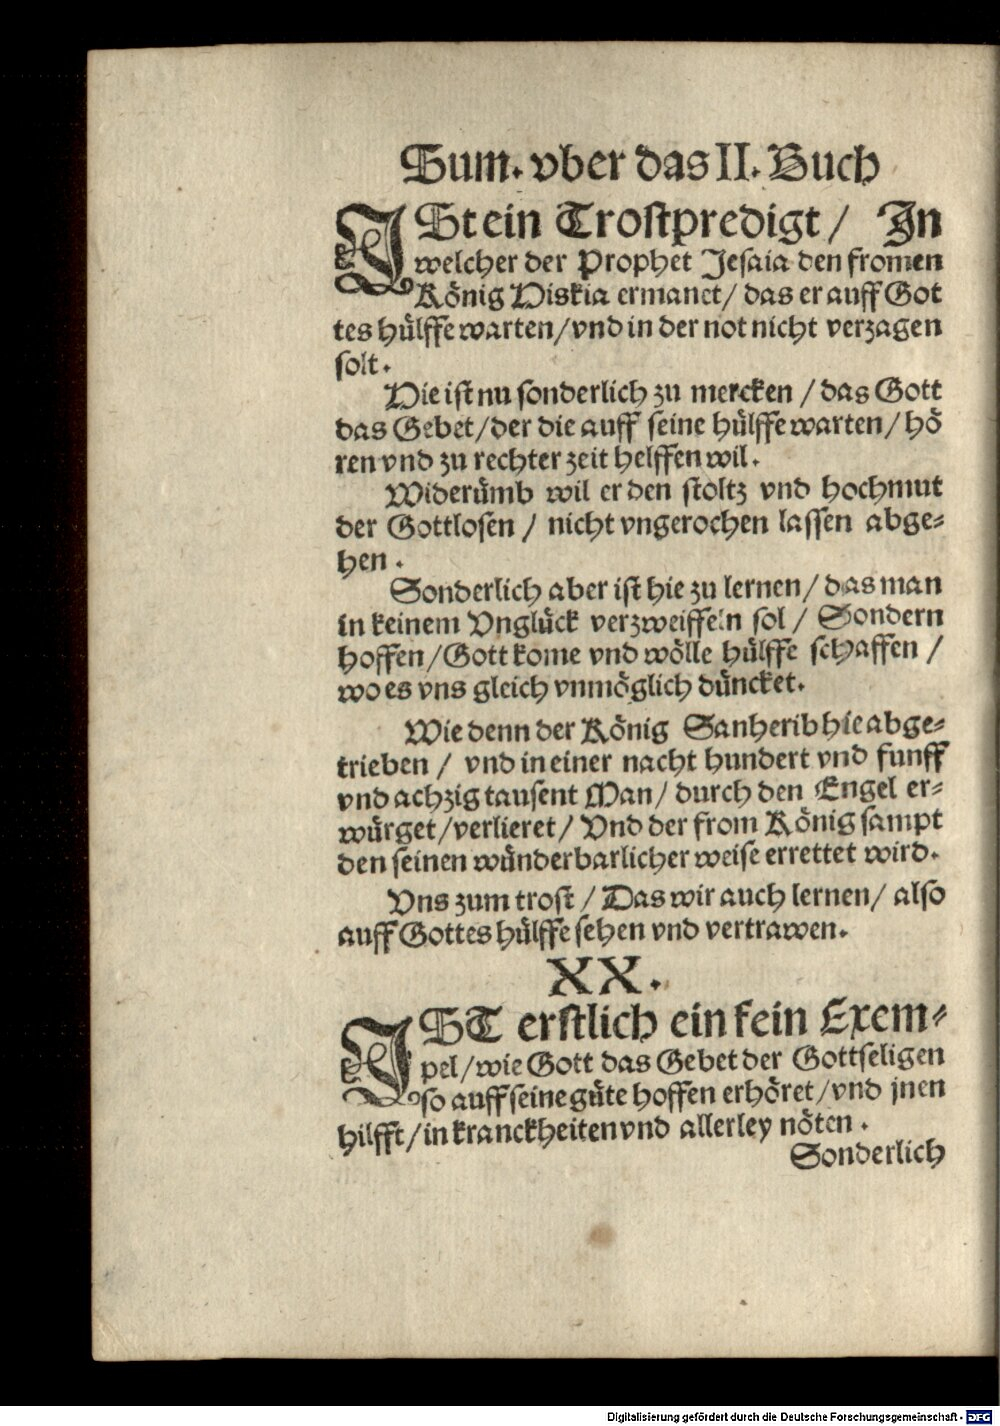 Sum. vber das II. Buch
ISt ein Trostpredigt / In
welcher der Prophet Jesaia den fromen
König Hiskia ermanet / das er auff Got
tes hülffe warten / vnd in der not nicht verzagen
solt.
Hie ist nu sonderlich zu mercken / das Gott
das Gebet / der die auff seine hülffe warten / hö
ren vnd zu rechter zeit helffen wil.
Widerümb wil er den stoltz vnd hochmut
der Gottlosen / nicht vngerochen lassen abge-
hen.
Sonderlich aber ist hie zu lernen / das man
in keinem Vnglück verzweiffeln sol / Sondern
hoffen / Gott kome vnd wölle hülffe schaffen /
wo es vns gleich vnmöglich düncket.
Wie denn der König Sanherib hie abge-
trieben / vnd in einer nacht hundert vnd funff
vnd achzig tausent Man / durch den Engel er-
würget / verlieret / Vnd der from König sampt
den seinen wünderbarlicher weise errettet wird.
Vns zum trost / Das wir auch lernen / also
auff Gottes hülffe sehen vnd vertrawen.
XX.
IST erstlich ein fein Exem-
pel / wie Gott das Gebet der Gottseligen
so auff seine güte hoffen erhöret / vnd jnen
hilfft / in kranckheiten vnd allerley nöten.
Sonderlich
Digitalisierung gefördert durch die Deutsche Forschungsgemeinschaft - DFG